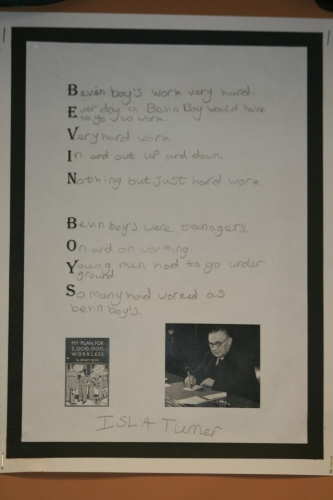 Bevin boy's work very hard.
Ever day a Bevin Boy would have
to go to work.
Very hard work.
In and out up and down.
Nothing but just hard work.
Bevin boy's were teenagers.
On and on working.
Young men had to go under
ground.
So many had worked as
bevin boy's.
MY PLAN FOR
2,000,000
WORKLESS
ISLA Turner